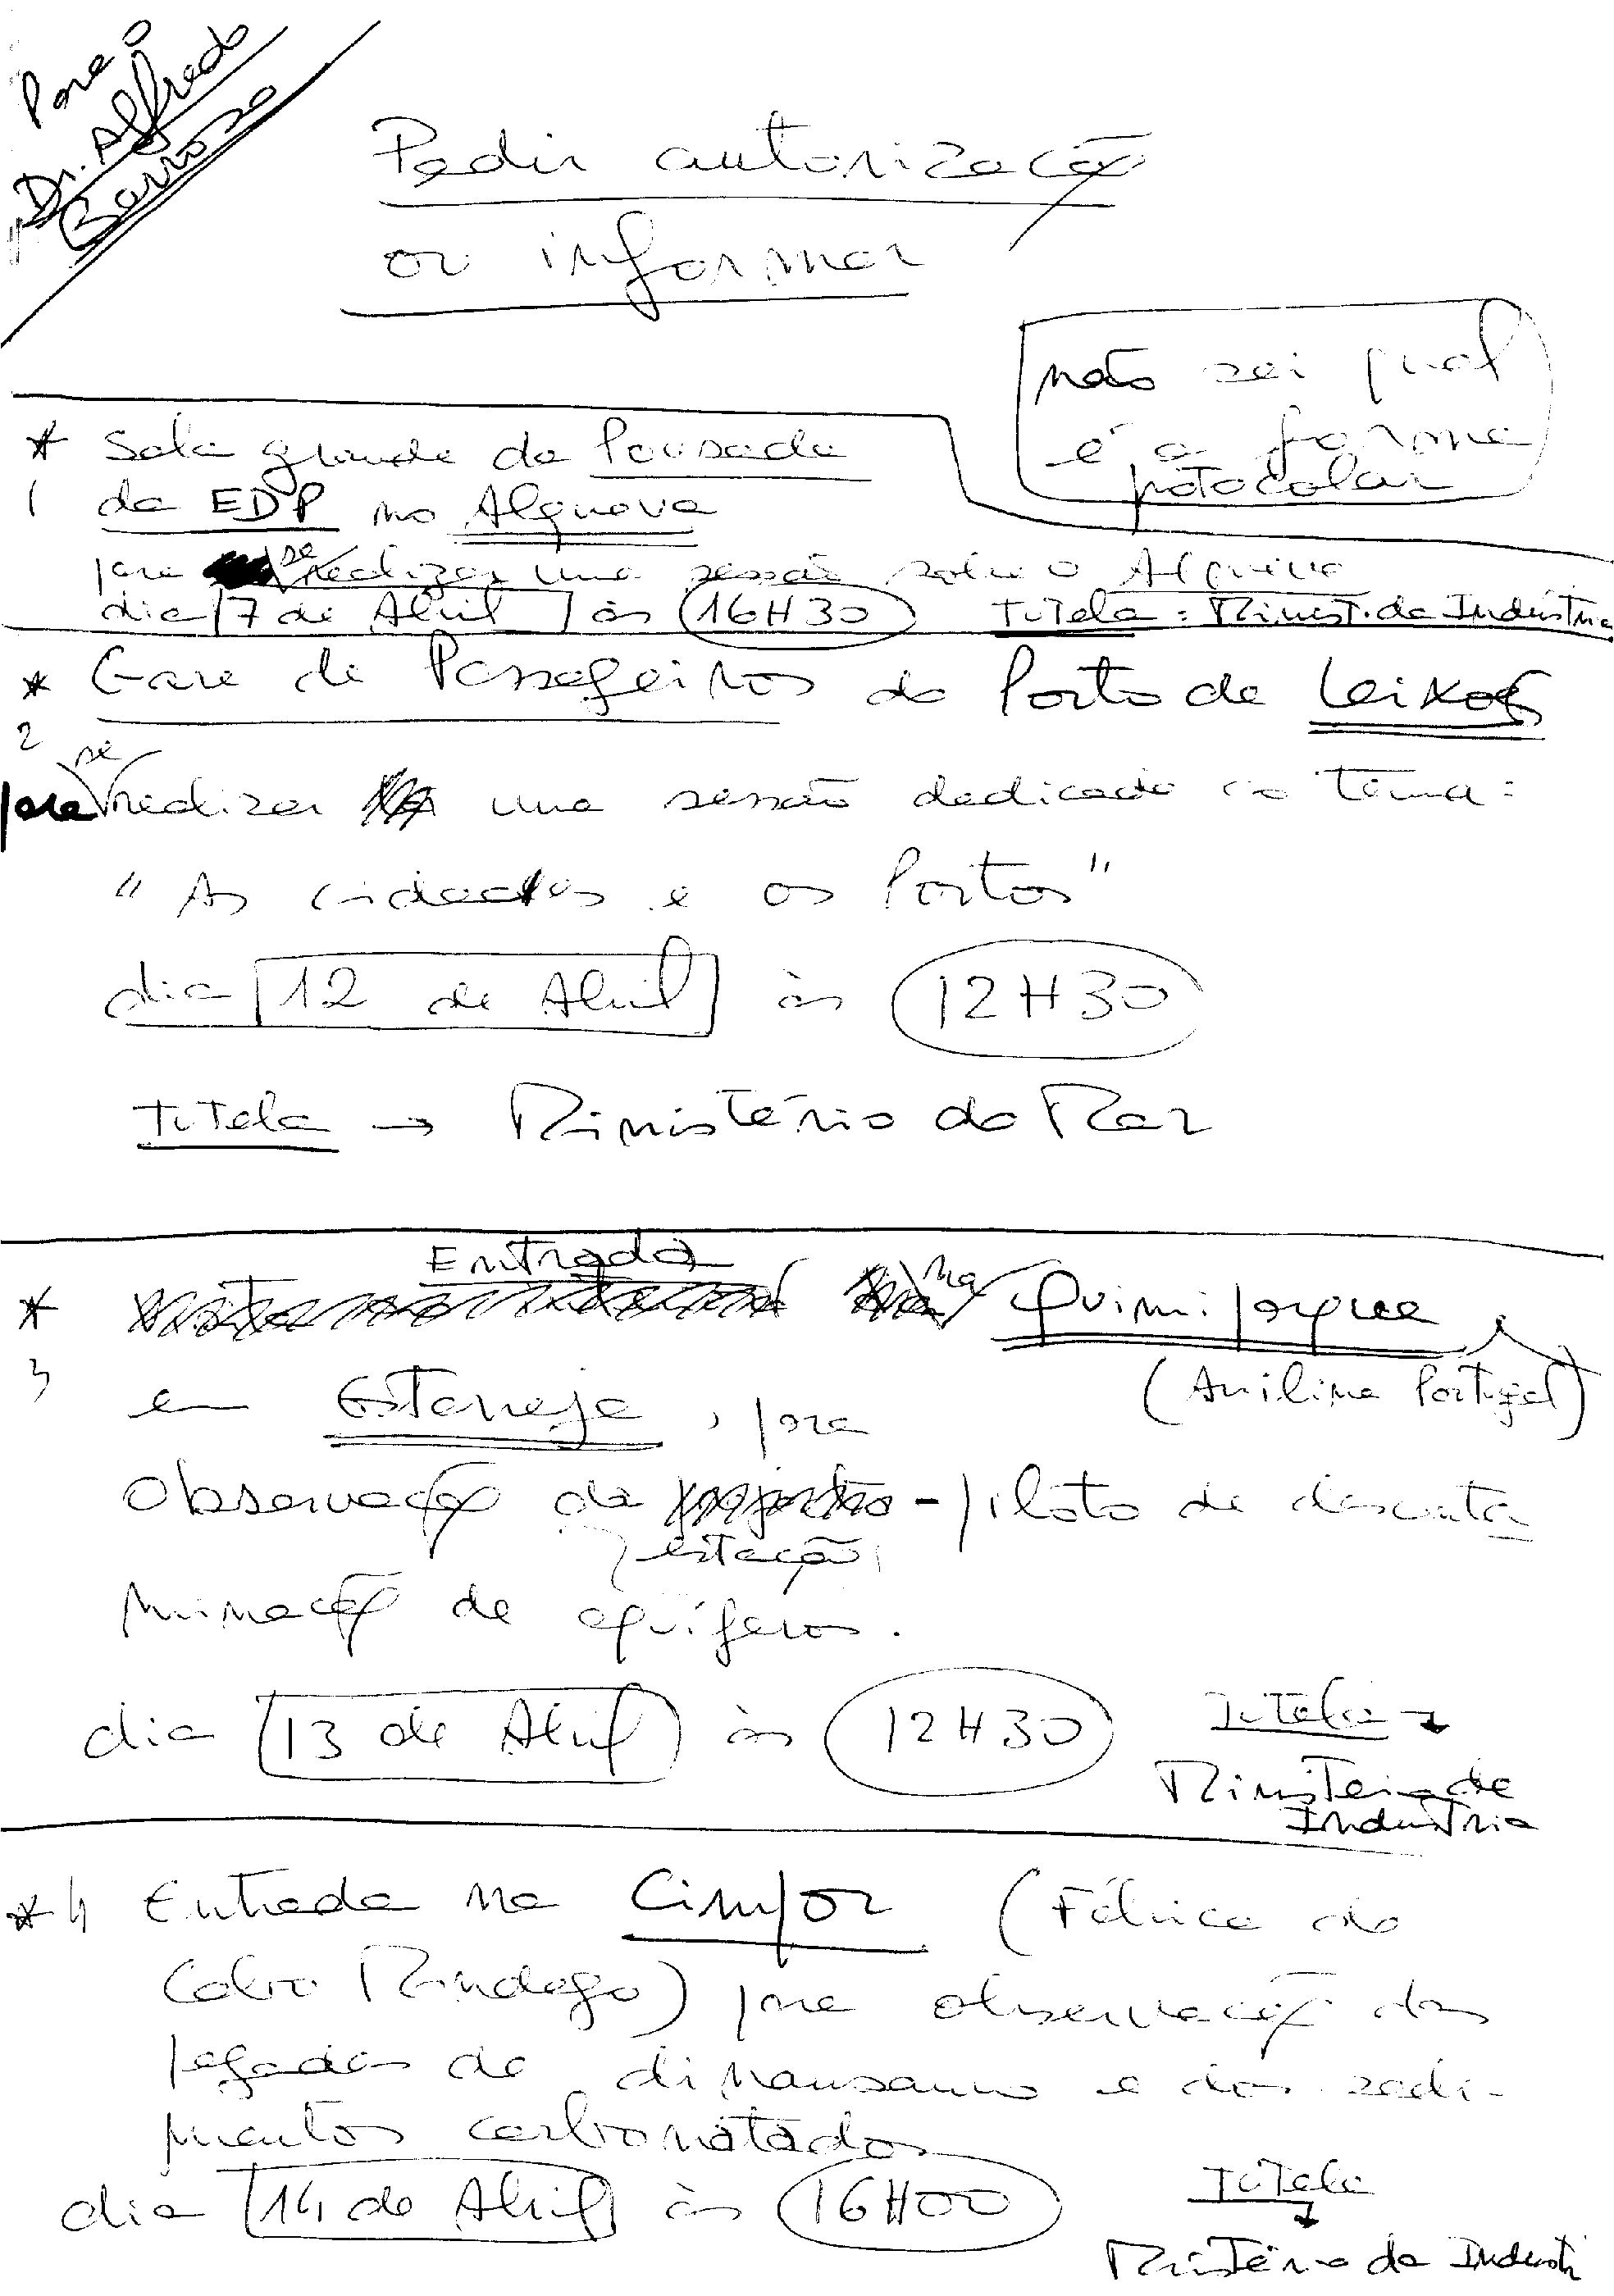 Para o
Dr. Alfredo
Barroso
Pedir autorização
ou informar
não sei qual
é a forma
protocolar
* Sala grande da Pousada
1 da EDP no Alqueva
para se realizar uma sessão sobre o Alqueva
dia 7 de Abril às 16H30 Tutela: Minist. da Indústria
* Gare de Passageiros do Porto de Leixões
2 se
para realizar uma sessão dedicada ao tema:
"As cidades e os Portos"
dia 12 de Abril às 12H30
Tutela → Ministério do Mar
Entrada
* na Quimiparque
3 em Estarreja, para (Anilina Portugal)
observação da - piloto de desconta
estação
minação de aquíferos.
dia 13 de Abril às 12H30 Tutela →
Ministério da
Indústria
* 4 Entrada na Cimpor (Fábrica do
Cabo Mondego) para observação das
pegadas do dinausauro e dos sedi-
mentos carbonatados
dia 14 de Abril às 16H00 Tutela
Ministério da Industri